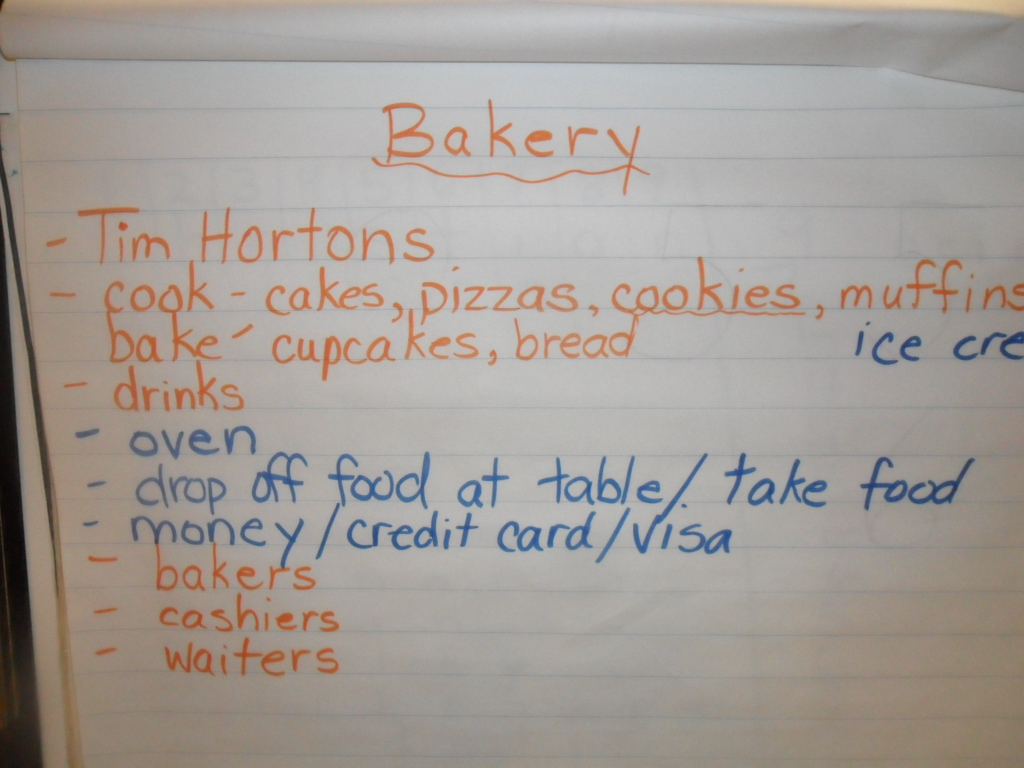 Bakery
- Tim Hortons
- cook - cakes, pizzas, cookies, muffins
bake - cupcakes, bread ice cre
- drinks
- oven
- drop off food at table/. take food
- money/credit card/Visa
- bakers
- cashiers
- waiters